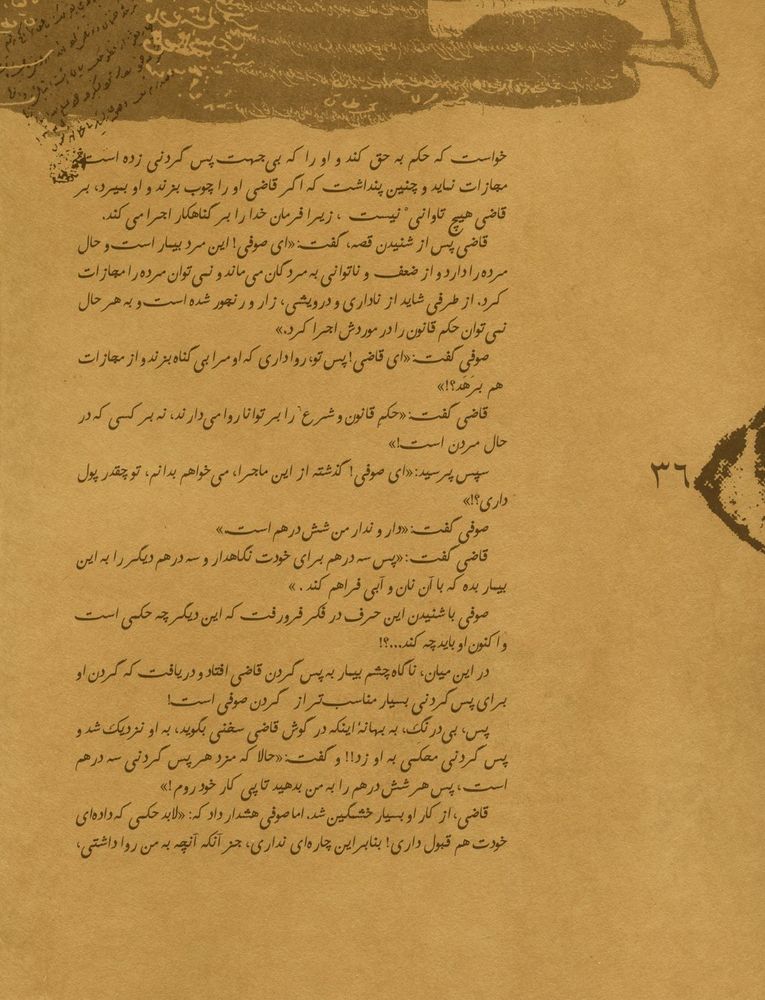 خواست که حکم به حق کند و او را که بی‌جهت پس گردنی زده است
مجازات نماید و چنین پنداشت که اگر قاضی او را چوب بزند و او بمیرد، بر
قاضی هیچ تاوانی نیست ، زیرا فرمان خدا را بر گناهکار اجرا می کند.
قاضی پس از شنیدن قصه، گفت: «ای صوفی! این مرد بیمار است و حال
مرده را دارد و از ضعف و ناتوانی به مردگان می‌ماند و نمی توان مرده را مجازات
کرد. از طرفی شاید از ناداری و درویشی، زار و رنجور شده است و به هر حال
نمی توان حکم قانون را در موردش اجرا کرد.»
صوفی گفت: «ای قاضی! پس تو، روا داری که او مرا بی گناه بزند و از مجازات
هم برَهَد؟!»
قاضی گفت: «حکمِ قانون و شرع را بر توانا روا می‌دارند، نه بر کسی که در
حال مردن است!»
سپس پرسید: «ای صوفی! گذشته از این ماجرا، می‌خواهم بدانم، تو چقدر پول
داری؟!»
صوفی گفت: «دار و ندار من شش درهم است.»
قاضی گفت: «پس سه درهم برای خودت نگاهدار و سه درهم دیگر را به این
بیمار بده که با آن نان و آبی فراهم کند . »
صوفی با شنیدن این حرف در فکر فرو رفت که این دیگر چه حکمی است
و اکنون او باید چه کند...؟!
در این میان، ناگاه چشم بیمار به پس گردن قاضی افتاد و دریافت که گردن او
برای پس گردنی بسیار مناسب‌تر از گردن صوفی است!
پس، بی‌درنگ، به بهانهٔ اینکه در گوش قاضی سخنی بگوید، به او نزدیک شد و
پس گردنی محکمی به او زد!! و گفت: «حالا که مزد هر پس گردنی سه درهم
است، پس هر شش درهم را به من بدهید تا پی کار خود روم!»
قاضی، از کار او بسیار خشمگین شد. اما صوفی هشدار داد که: «لابد حکمی که داده‌ای
خودت هم قبول داری! بنابراین چاره‌ای نداری، جز آنکه آنچه به من روا داشتی،
٣٦